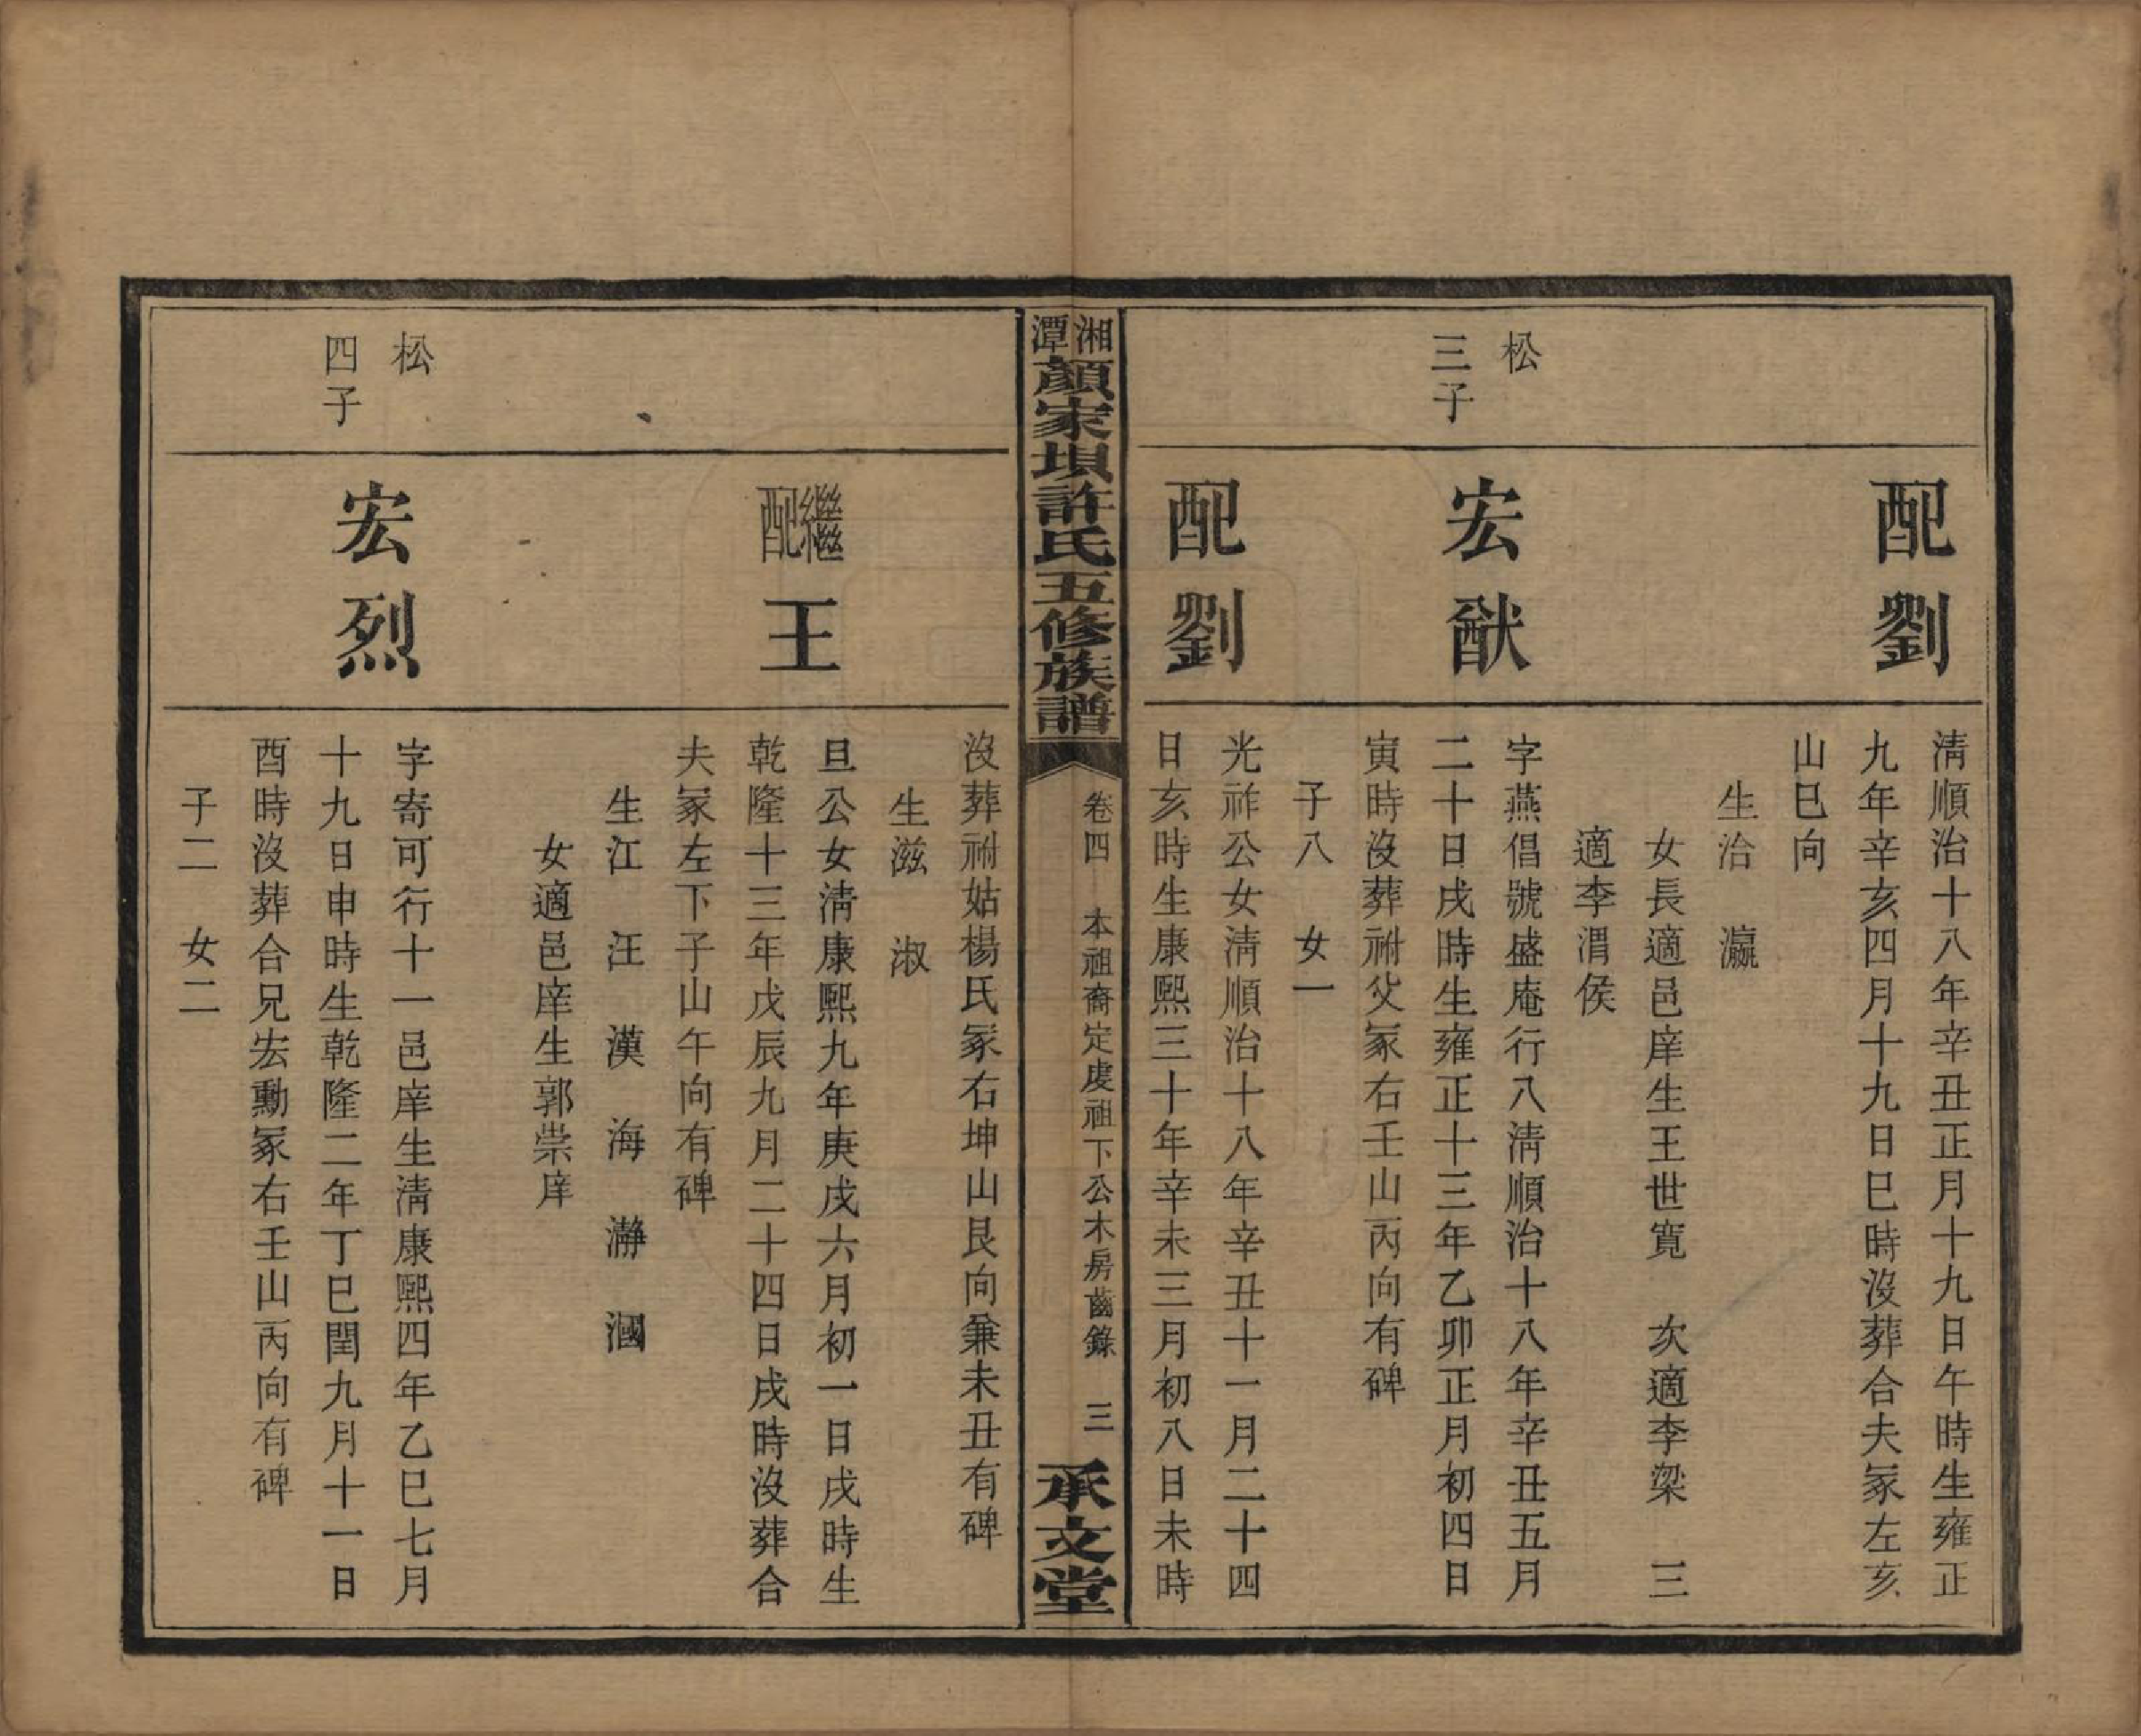 配劉
清順治十八年辛丑正月十九日午時生雍正
九年辛亥四月十九日巳時沒葬合夫冢左亥
山巳向
生洽　瀛
女長適邑庠生王世寬　次適李梁　三
適李渭侯
松
三子
宏猷
字燕倡號盛庵行八清順治十八年辛丑五月
二十日戌時生雍正十三年乙卯正月初四日
寅時沒葬祔父冢右壬山丙向有碑
子八　女一
配劉
光祚公女清順治十八年辛丑十一月二十四
日亥時生康熙三十年辛未三月初八日未時
湘潭顏家垻許氏五修族譜
卷四　本祖裔定虔祖下公木房齒錄　三
承文堂
沒葬祔姑楊氏冢右坤山艮向兼未丑有碑
生滋　淑
繼配王
旦公女清康熙九年庚戌六月初一日戌時生
乾隆十三年戊辰九月二十四日戌時沒葬合
夫冢左下子山午向有碑
生江　汪　漢　海　瀞　漍
女適邑庠生郭崇庠
松
四子
宏烈
字寄可行十一邑庠生清康熙四年乙巳七月
十九日申時生乾隆二年丁巳閏九月十一日
酉時沒葬合兄宏勳冢右壬山丙向有碑
子二　女二